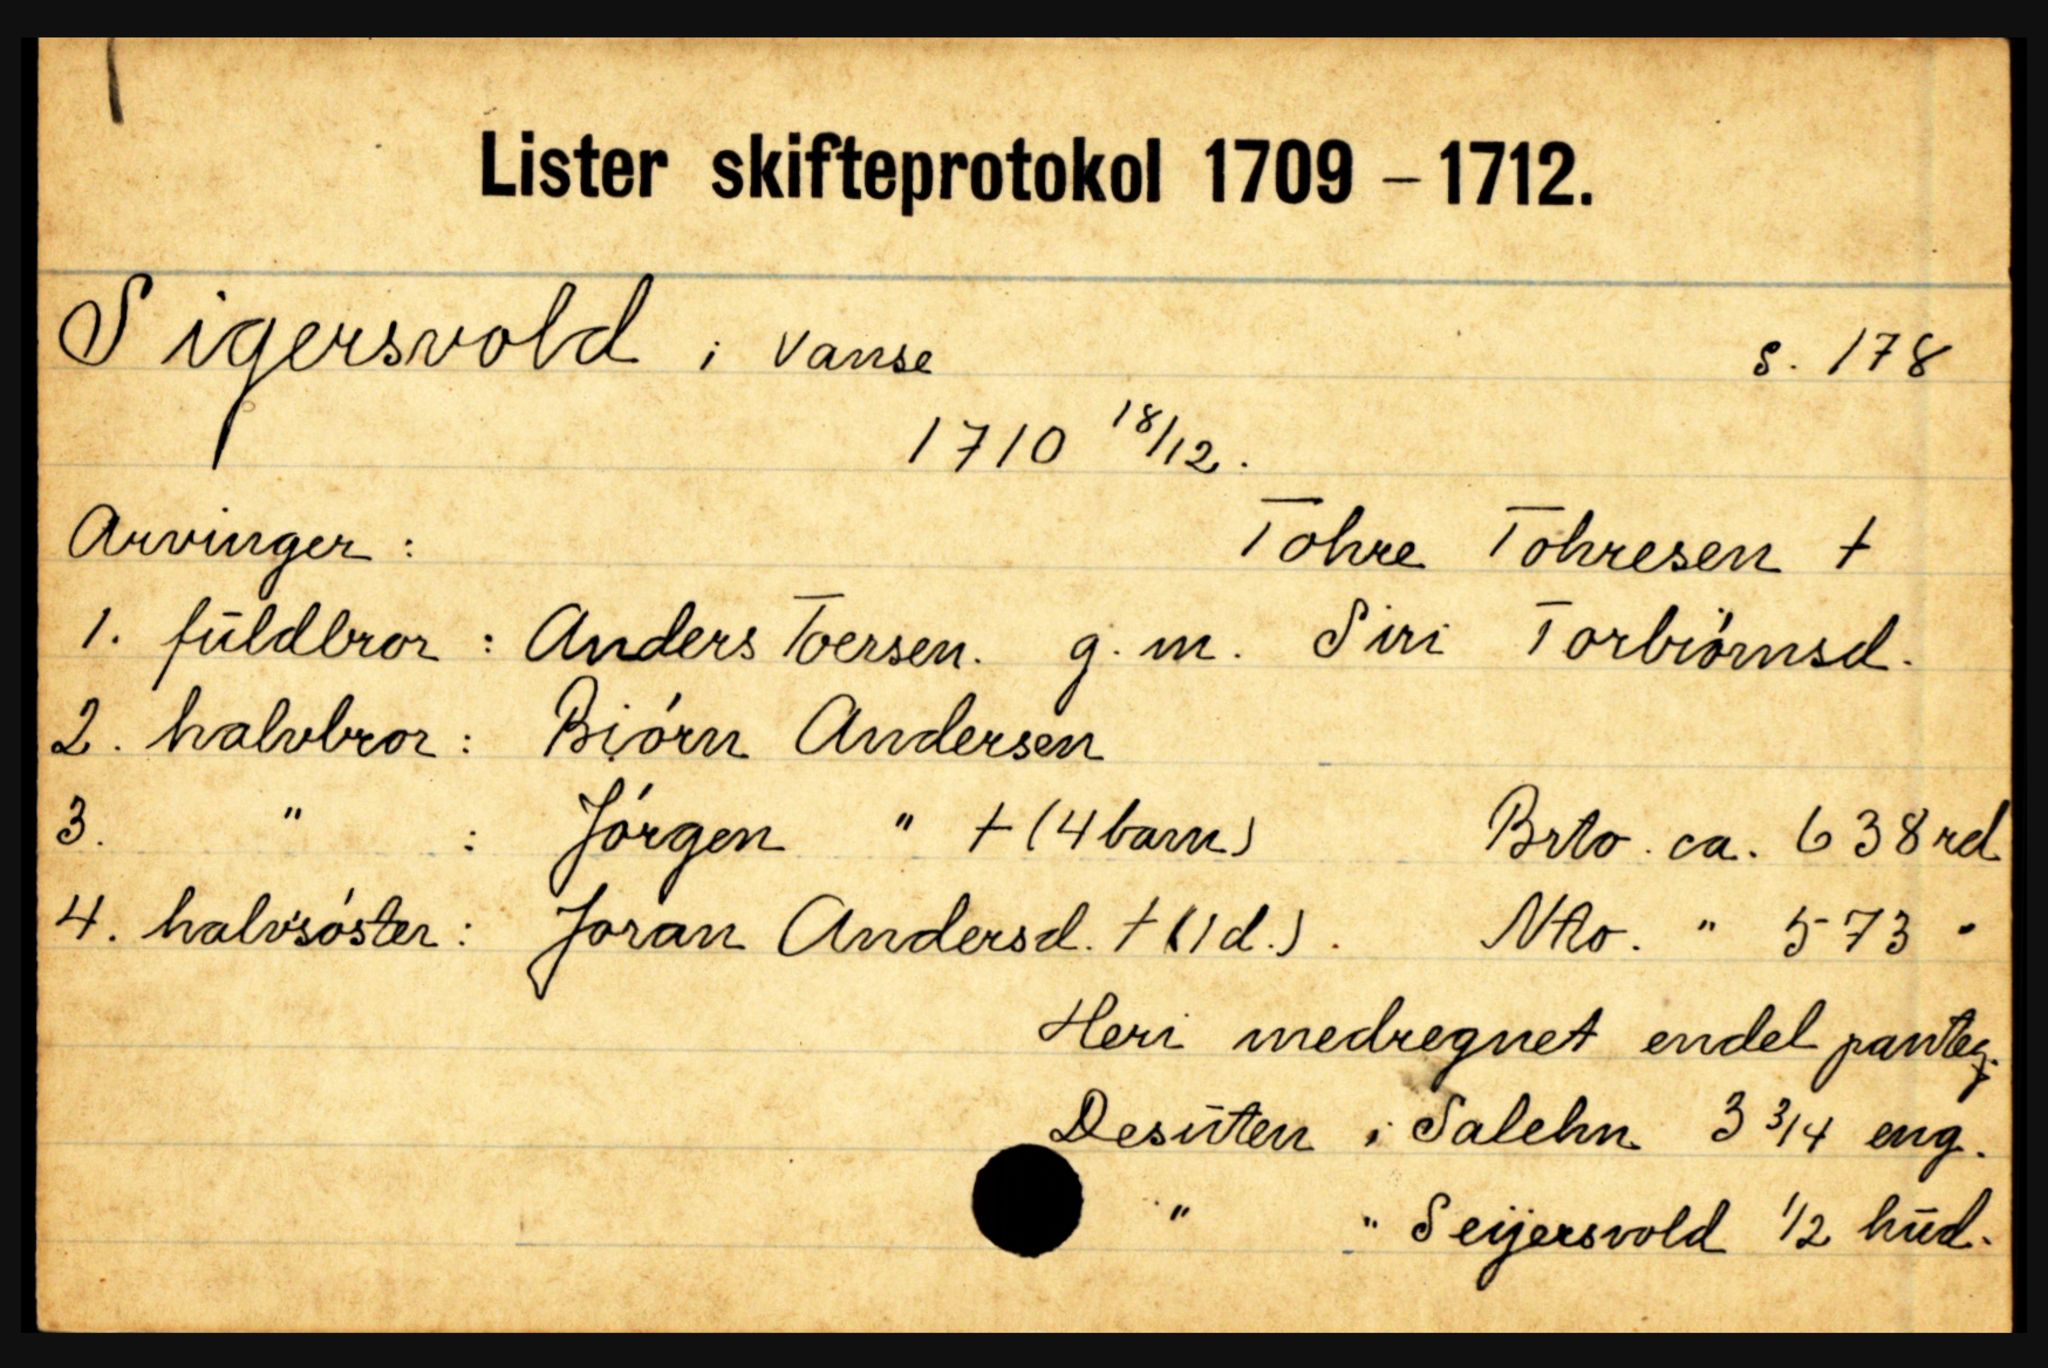 Lister skifteprotokol 1709 – 1712.
Sigersvold i Vanse s. 178
1710 18/12.
Arvinger: Tohre Tohresen †
1. fuldbror: Anders Toersen. g.m. Siri Torbiörnsd.
2. halvbror: Biörn Andersen
3. " : Jörgen " † (4 barn) Brto. ca. 638 rd
4. halvsöster: Joran Andersd. † (1 d.). Nto. " 573 "
Heri medregnet endel panteg.
Desuten i Salehn 3 3/4 eng.
" " Seijersvold 1/2 hud.